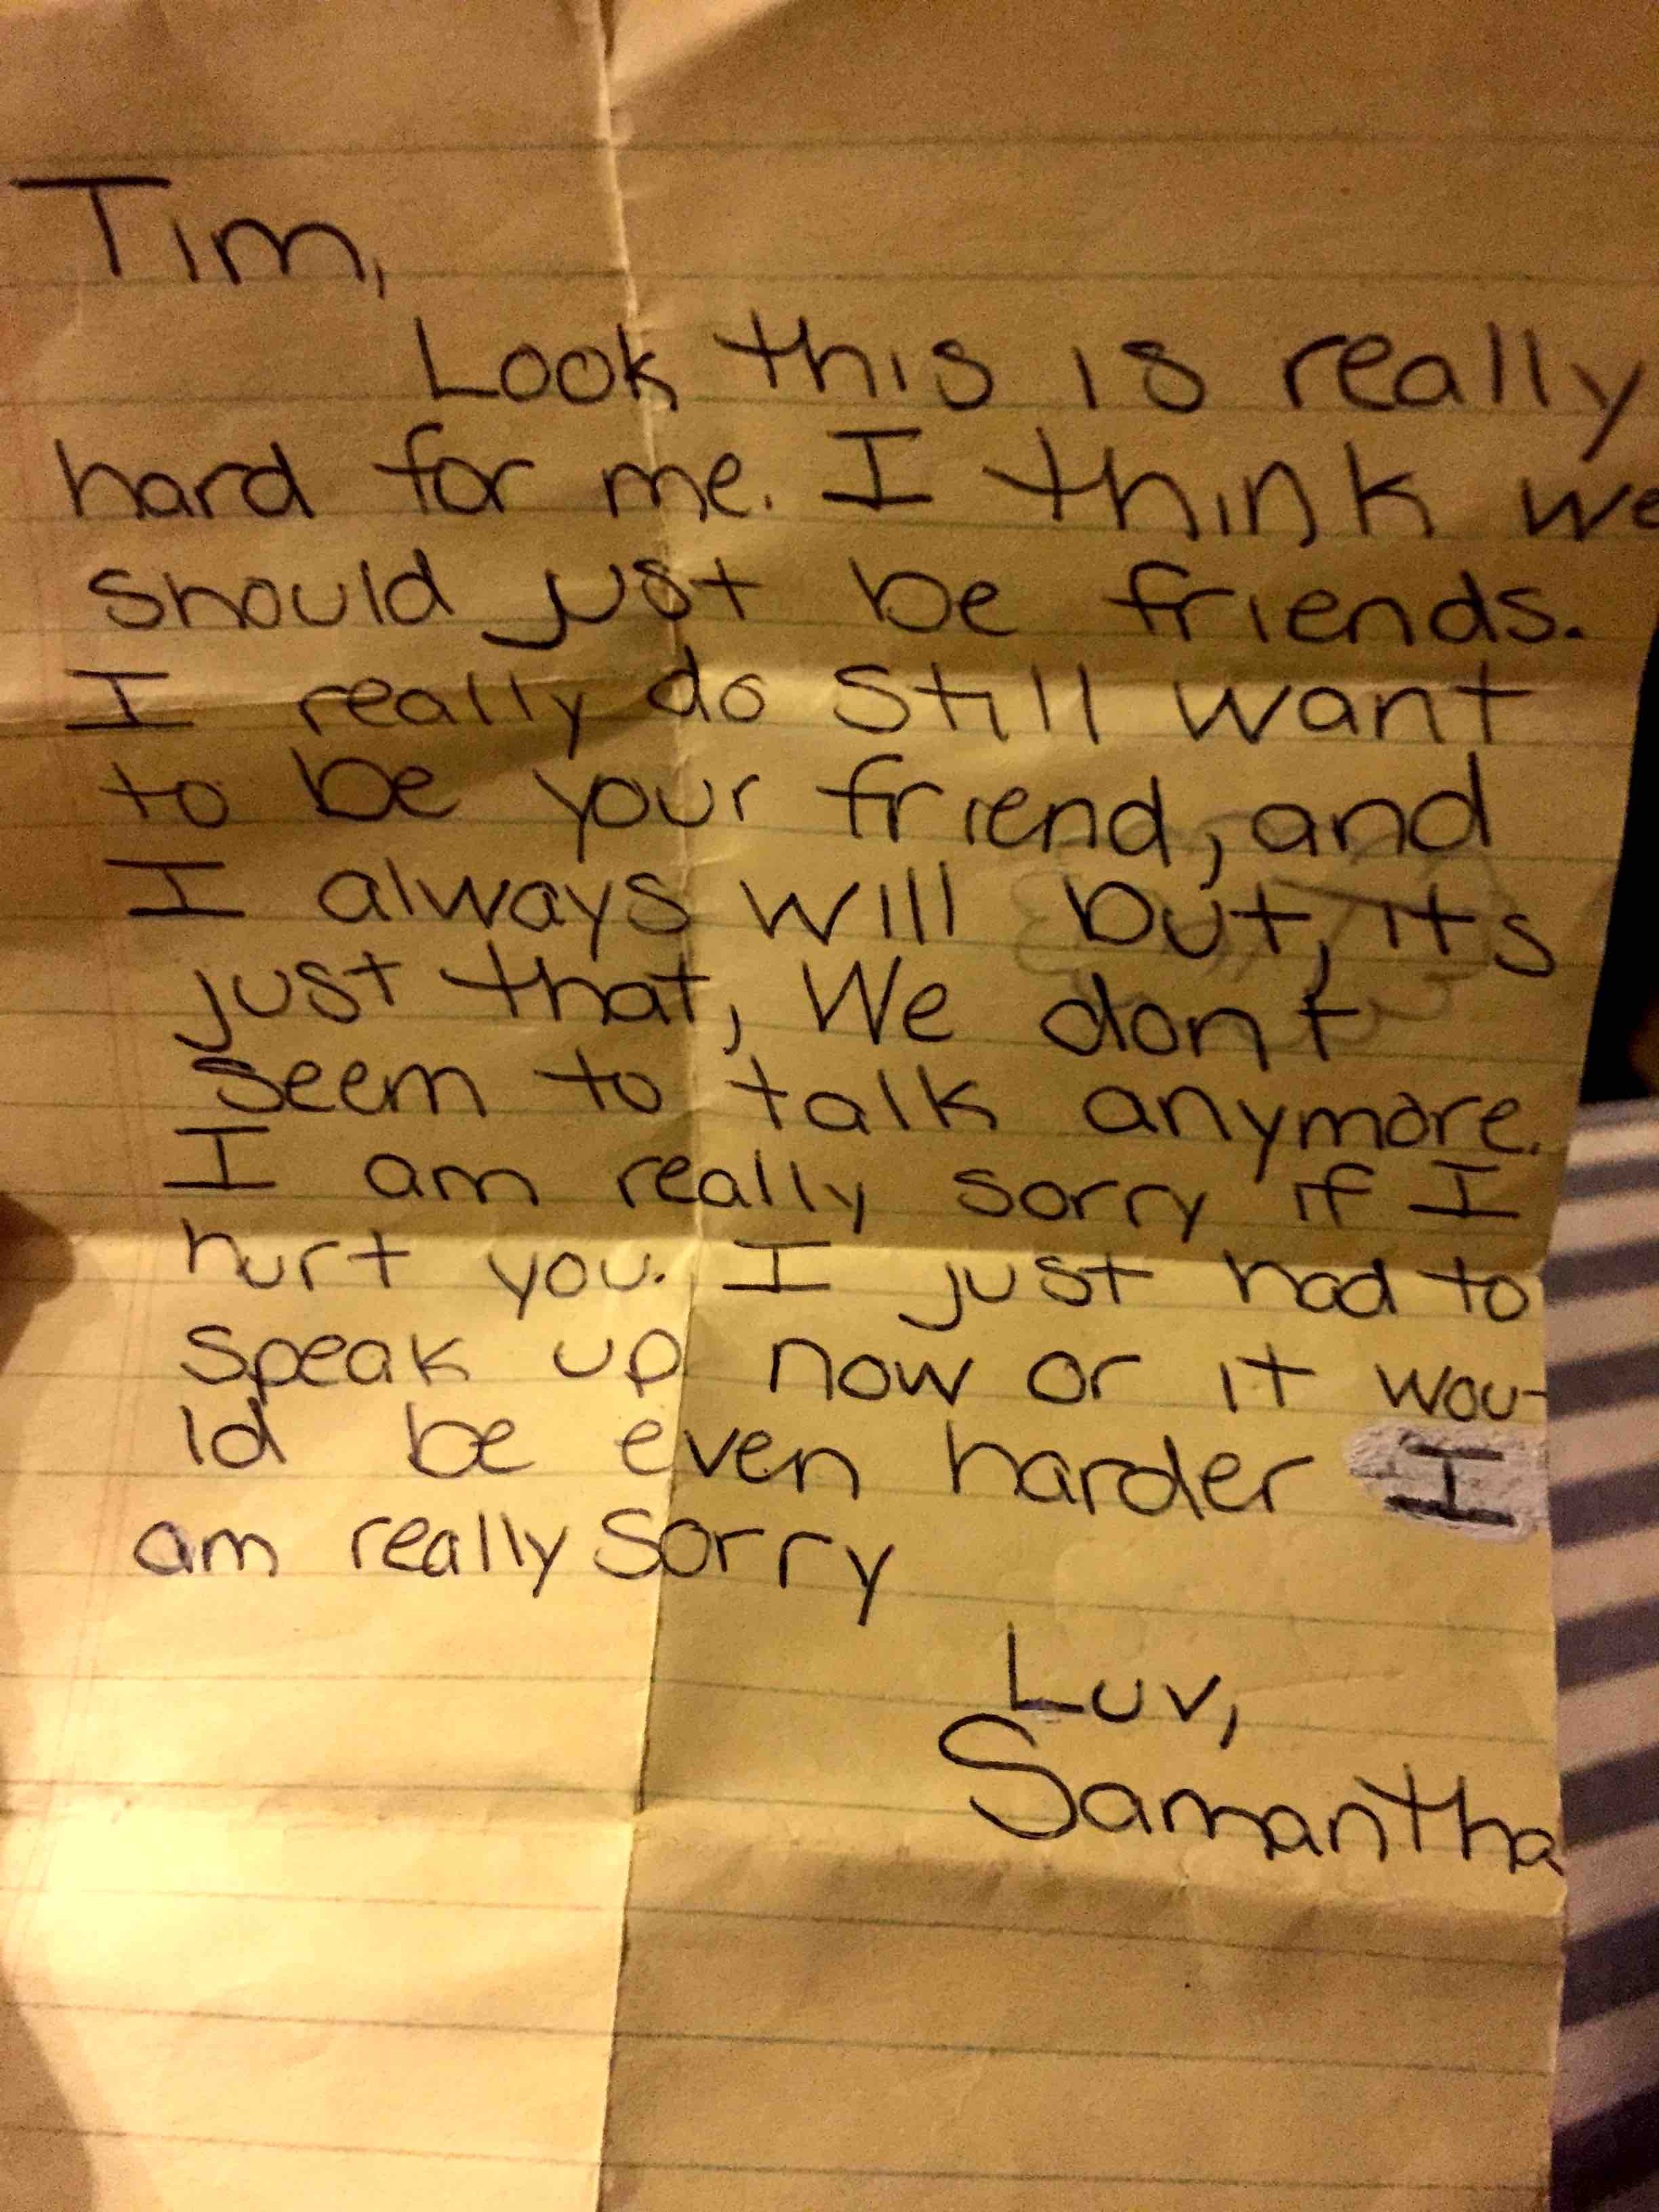 Tim,
Look this is really
hard for me. I think we
should just be friends.
I really do still want
to be your friend, and
I always will but, its
just that, We dont
seem to talk anymore.
I am really sorry if I
hurt you. I just had to
speak up now or it wou-
ld be even harder I
am really sorry
Luv,
Samantha